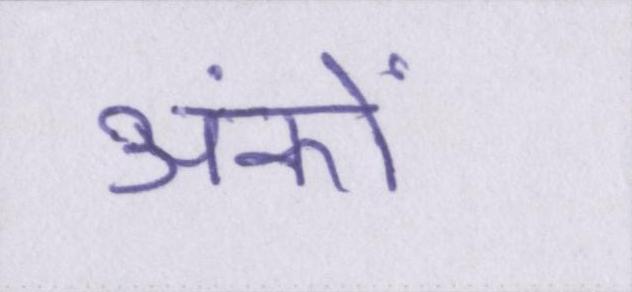 अंकों